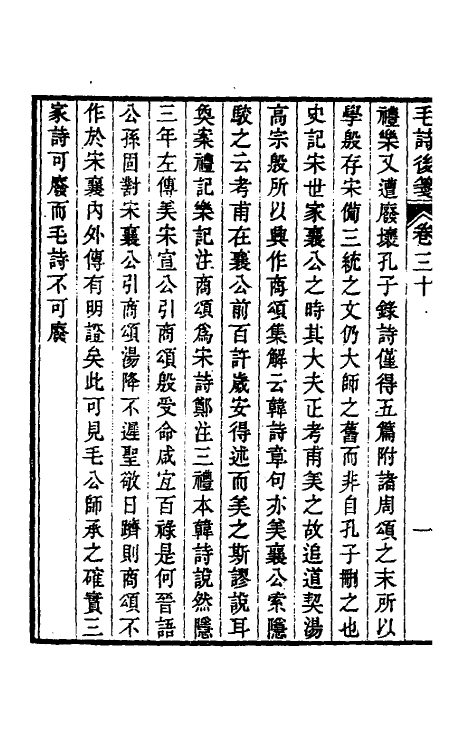 毛詩後箋　卷三十　一
禮樂又遭廢壞孔子錄詩僅得五篇附諸周頌之末所以
學殷存宋備三統之文仍大師之舊而非自孔子刪之也
史記宋世家襄公之時其大夫正考甫美之故追道契湯
高宗殷所以興作商頌集解云韓詩章句亦美襄公索隱
駮之云考甫在襄公前百許歲安得述而美之斯謬說耳
奐案禮記樂記注商頌爲宋詩鄭注三禮本韓詩說然隱
三年左傳美宋宣公引商頌殷受命咸宜百祿是何晉語
公孫固對宋襄公引商頌湯降不遲聖敬日躋則商頌不
作於宋襄內外傳有明證矣此可見毛公師承之確實三
家詩可廢而毛詩不可廢